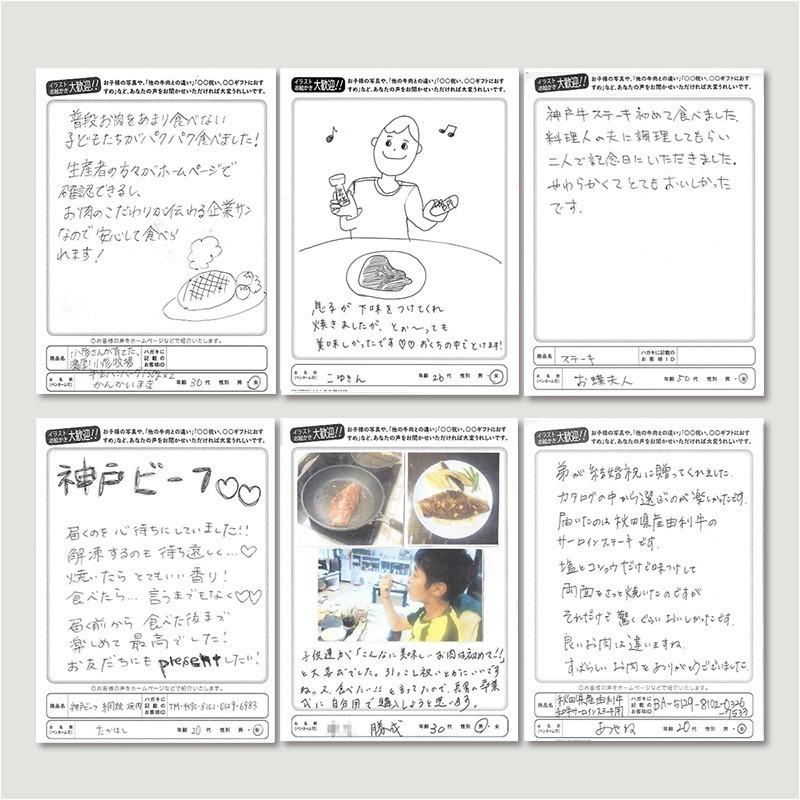 イラスト お絵かき 大歓迎!! お子様の写真や、「他の牛肉との違い」「〇〇祝い、〇〇ギフトにおす
すめ」など、あなたの声をお聞かせいただければ大変うれしいです。
普段お肉をあまり食べない
子どもたちがパクパク食べました!
生産者の方々がホームページで
確認できるし、
お肉のこだわりが伝わる企業サン
なので安心して食べら
れます!
◎お客様の声をホームページなどで紹介いたします。
商品名 小形さんが育てた、
濃厚!小形牧場
ハガキに記載のお客様ID
お名前(ペンネーム可) かんかいまき 年齢 30代 性別 男・女
イラスト お絵かき 大歓迎!! お子様の写真や、「他の牛肉との違い」「〇〇祝い、〇〇ギフトにおす
すめ」など、あなたの声をお聞かせいただければ大変うれしいです。
息子が下味をつけてくれ
焼きましたが、とぉ〜っても
美味しかったです♡♡おくちの中でとけます!
お名前(ペンネーム可) こゆきん 年齢 26代 性別 男・女
イラスト お絵かき 大歓迎!! お子様の写真や、「他の牛肉との違い」「〇〇祝い、〇〇ギフトにおす
すめ」など、あなたの声をお聞かせいただければ大変うれしいです。
神戸牛ステーキ初めて食べました。
料理人の夫に調理してもらい
二人で記念日にいただきました。
やわらかくてとてもおいしかった
です。
商品名 ステーキ ハガキに記載のお客様ID
お名前(ペンネーム可) お蝶夫人 年齢 50代 性別 男・女
イラスト お絵かき 大歓迎!! お子様の写真や、「他の牛肉との違い」「〇〇祝い、〇〇ギフトにおす
すめ」など、あなたの声をお聞かせいただければ大変うれしいです。
神戸ビーフ♡♡
届くのを心待ちにしていました!!
解凍するのも待ち遠しく…♡
焼いたらとてもいい香り!
食べたら…言うまでもなく♡♡
届く前から食べた後まで
楽しめて最高でした!
お友だちにもpresentしたい!
◎お客様の声をホームページなどで紹介いたします。
商品名 神戸ビーフ 網焼 焼肉 ハガキに記載のお客様ID TM-4590-8102-0129-6983
お名前(ペンネーム可) たかはし 年齢 20代 性別 男・女
イラスト お絵かき 大歓迎!! お子様の写真や、「他の牛肉との違い」「〇〇祝い、〇〇ギフトにおす
すめ」など、あなたの声をお聞かせいただければ大変うれしいです。
子供達が「こんなに美味しいお肉は初めて!!」
と大喜びでした。引っこし祝いとかにいいです
ねっ又、食べたい!!と言ってたので、長男の卒業
式に自分用で購入しようと思います。
お名前(ペンネーム可) 勝成 年齢 30代 性別 男・女
イラスト お絵かき 大歓迎!! お子様の写真や、「他の牛肉との違い」「〇〇祝い、〇〇ギフトにおす
すめ」など、あなたの声をお聞かせいただければ大変うれしいです。
弟が結婚祝に贈ってくれました。
カタログの中から選ぶのが楽しかったです。
届いたのは秋田県産由利牛の
サーロインステーキです。
塩とコショウだけで味つけして
両面をさっと焼いたのですが
それだけで驚くぐらいおいしかったです。
良いお肉は違いますね。
すばらしいお肉をありがとうございました。
◎お客様の声をホームページなどで紹介いたします。
商品名 秋田県産由利牛
和牛サーロインステーキ用
ハガキに記載のお客様ID BA-5129-8102-0326
-7533
お名前(ペンネーム可) あつね 年齢 20代 性別 男・女